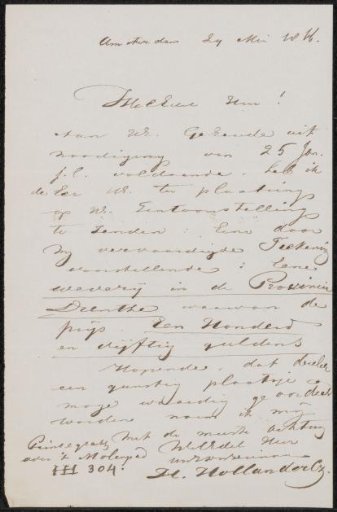 Amsterdam 29 Mei 18
Heer!
Aan Uw Geëerde uit
noodiging van 25 Jan.
j.l. voldoende, heb ik
de Eer U ter plaatsing
op Uw Tentoonstelling
te zenden: Eene door
mij vervaardigde Teekening
voorstellende: Eene
weverij in de Provincie
Drenthe waarvan de
prijs Een Honderd
en vijftig guldens
Hopende dat dezelve
een gunstig plaatsje
moge waardig geoordeeld
worden noem ik mij
met de meeste achting
WelEdel Heer
Prinsegracht
over 't Molenpad
III 304.
H. Hollander Cz.